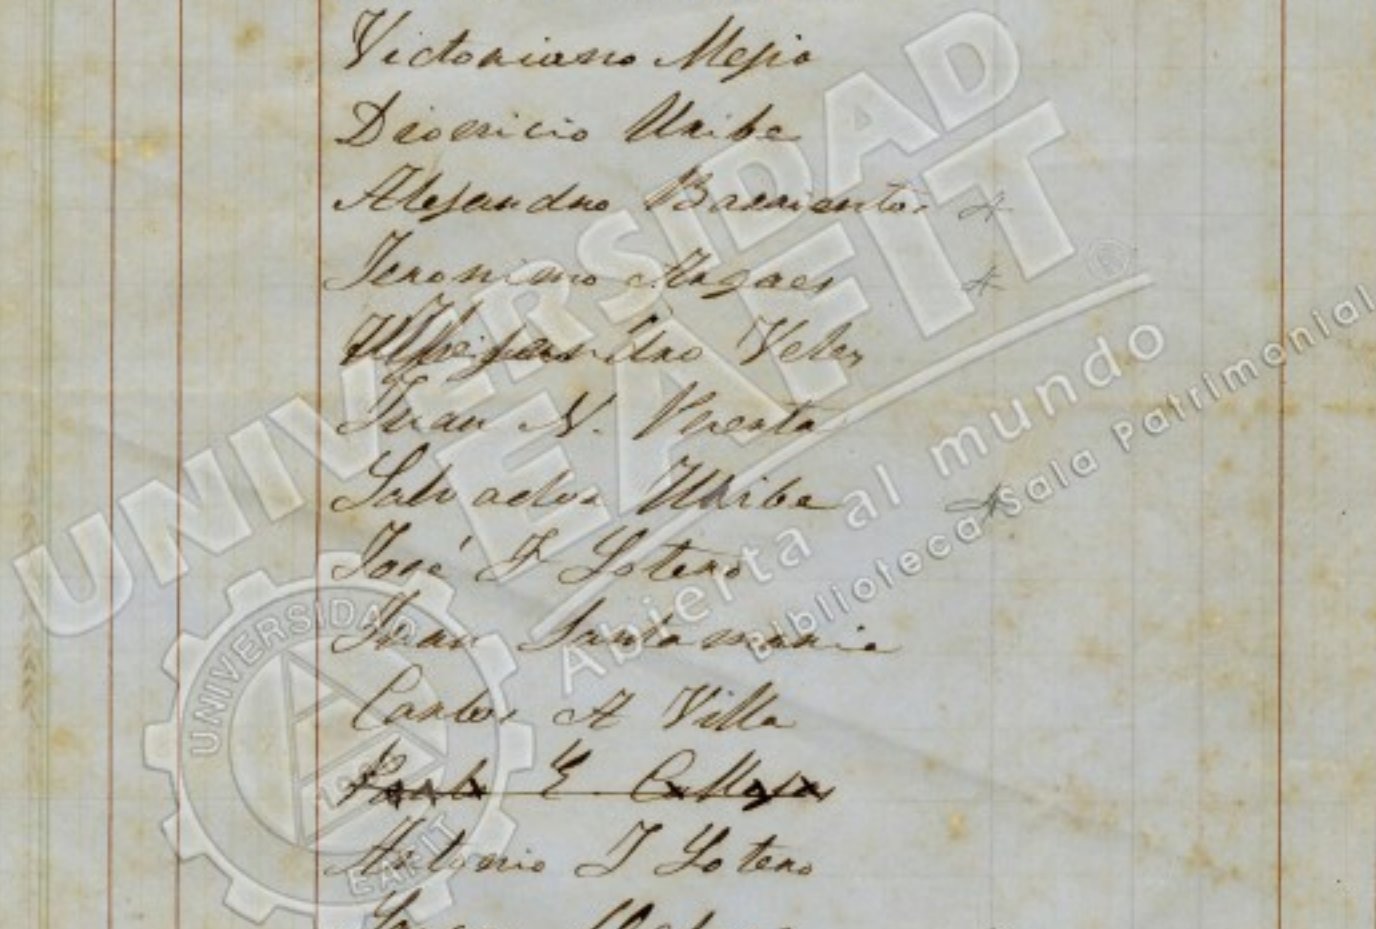 Victoriano Mejia
Dionicio Uribe
Alejandro Barrientos
Jeronimo
Velez
Juan N.
Salvador Uribe
José I Sotero
Juan Santamaria
Carlos A Villa
E. Callejas
Antonio J Sotero
UNIVERSIDAD
EAFIT
®
Abierta al mundo
Biblioteca Sala Patrimonial
UNIVERSIDAD
EAFIT